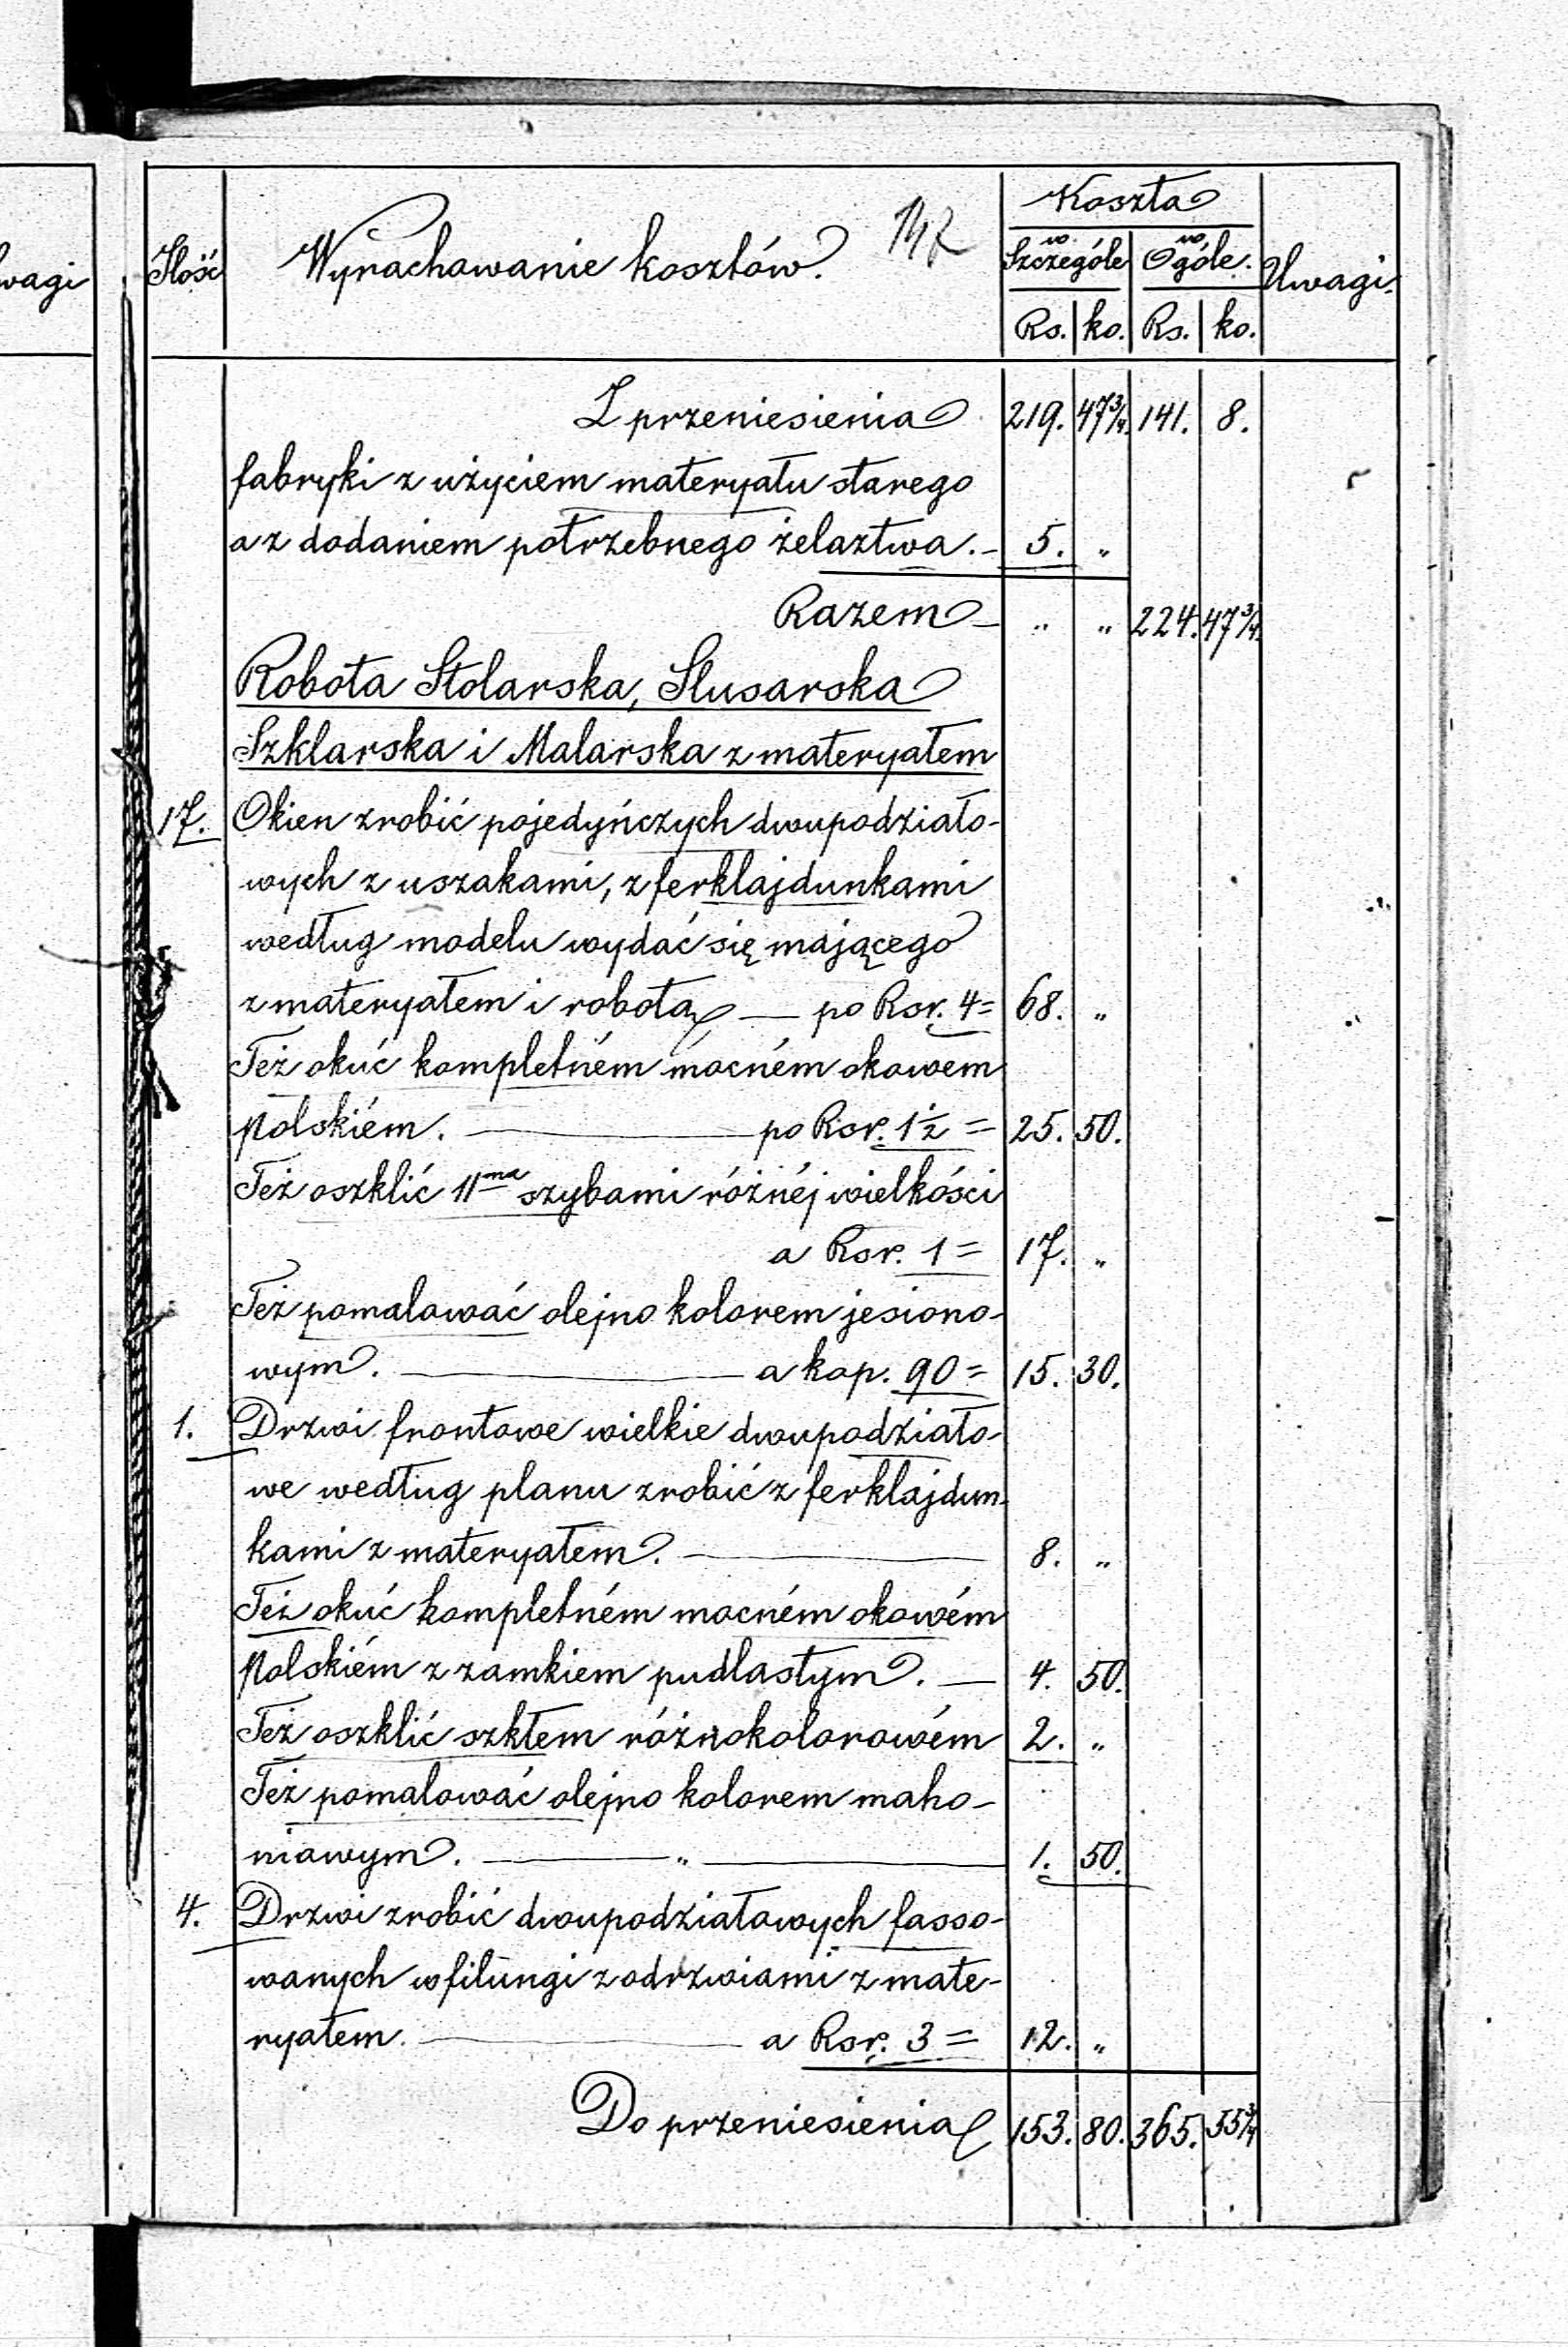 wagi
Ilość Wyrachowanie kosztów. 147 Koszta Uwagi.
w Szczególe w Ogóle.
Rs. ko. Rs. ko.
Z przeniesienia 219. 47¾. 141. 8.
fabryki z użyciem materyału starego
a z dodaniem potrzebnego żelaztwa. – 5. „
Razem – „ „ 224. 47¾.
Robota Stolarska, Slusarska
Szklarska i Malarska z materyałem
17. Okien zrobić pojedyńczych dwupodziało-
wych z uszakami, z ferklajdunkami
według modelu wydać się mającego
z materyałem i robotą — po Rsr. 4 = 68. „
Też okuć kompletném mocném okowem
polskiém. — po Rsr. 1½ = 25. 50.
Też oszklić 11ma szybami różnéj wielkości
a Rsr. 1 = 17. „
Też pomalować olejno kolorem jesiono-
wym. — a kop. 90 = 15. 30.
1. Drzwi frontowe wielkie dwupodziało-
we według planu zrobić z ferklajdun-
kami z materyałem. — 8. „
Też okuć kompletném mocném okowém
polskiém z zamkiem pudlastym. — 4. 50.
Też oszklić szkłem różnokolorowém 2. „
Też pomalować olejno kolorem maho-
niowym. — „ — 1. 50.
4. Drzwi zrobić dwupodziałowych fasso-
wanych w filungi z odrzwiami z mate-
ryałem. — a Rsr. 3 = 12. „
Do przeniesienia 153. 80. 365. 55¾